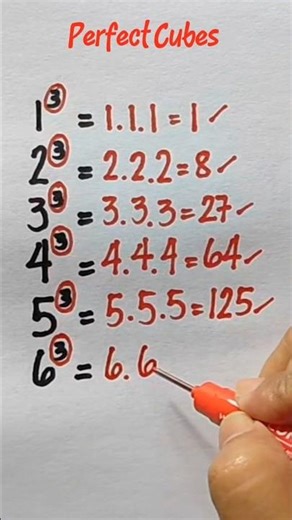 Perfect Cubes
1³ = 1.1.1 = 1 ✓
2³ = 2.2.2 = 8 ✓
3³ = 3.3.3 = 27 ✓
4³ = 4.4.4 = 64 ✓
5³ = 5.5.5 = 125 ✓
6³ = 6.6